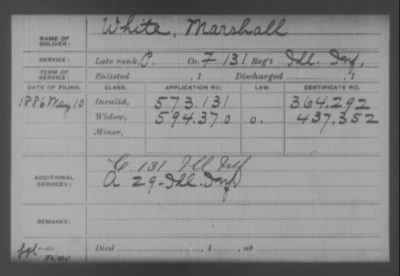 NAME OF SOLDIER: White, Marshall
SERVICE: Late rank, P. Co. F 131 Reg't Ill. Inf.
TERM OF SERVICE: Enlisted , 1 Discharged , 1
DATE OF FILING. CLASS. APPLICATION NO. LAW. CERTIFICATE NO.
1886 May 10 Invalid, 573.131 364.292
Widow, 594.370 o. 437.352
Minor,
C 131 Ill Inf
ADDITIONAL SERVICES: A 29 Ill. Inf
REMARKS:
Died , 1 , at